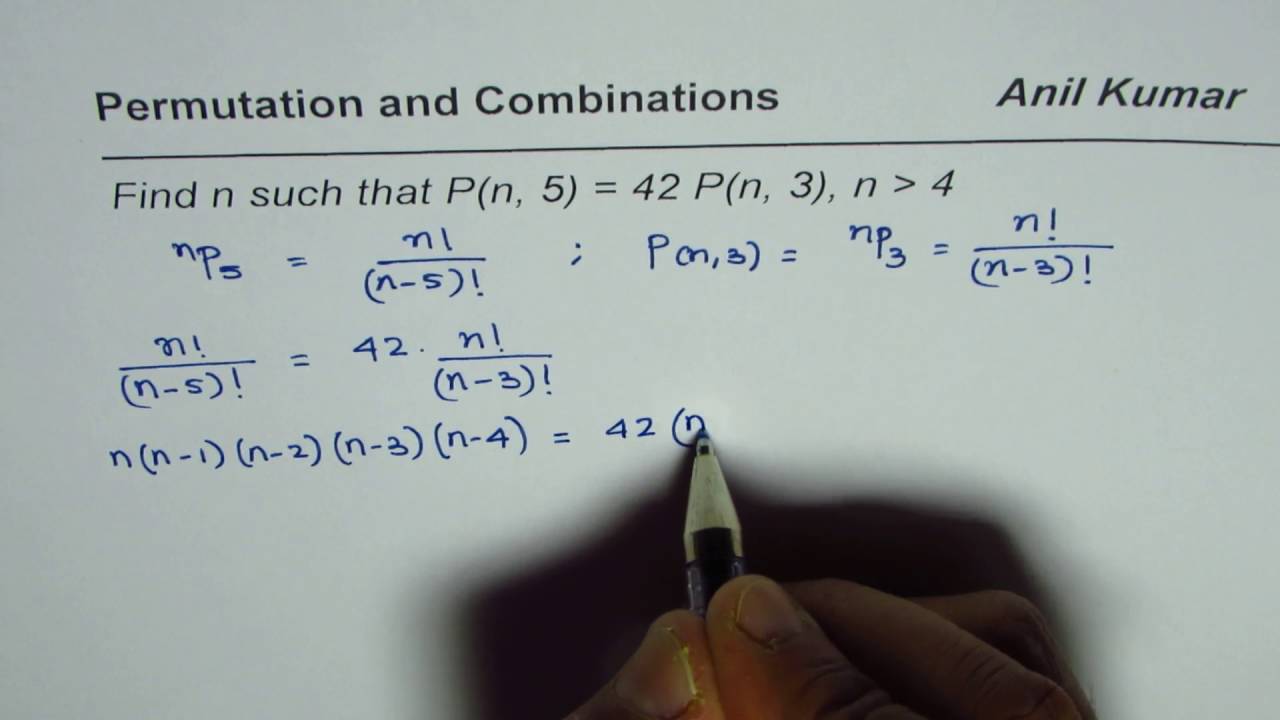 Permutation and Combinations Anil Kumar
Find n such that P(n, 5) = 42 P(n, 3), n > 4
nP5 = n!/(n-5)! ; P(n,3) = nP3 = n!/(n-3)!
n!/(n-5)! = 42 · n!/(n-3)!
n(n-1)(n-2)(n-3)(n-4) = 42 (n